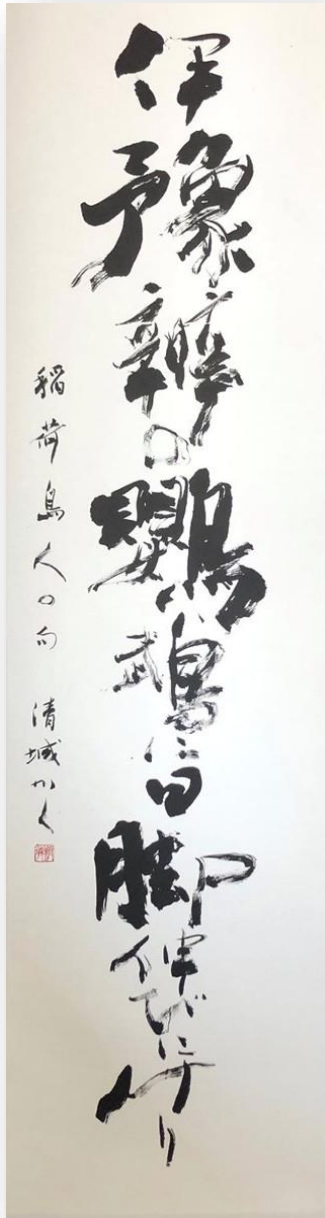 伊豫辯の鸚鵡に日脚伸びにけり
稲荷島人の句 清城かく